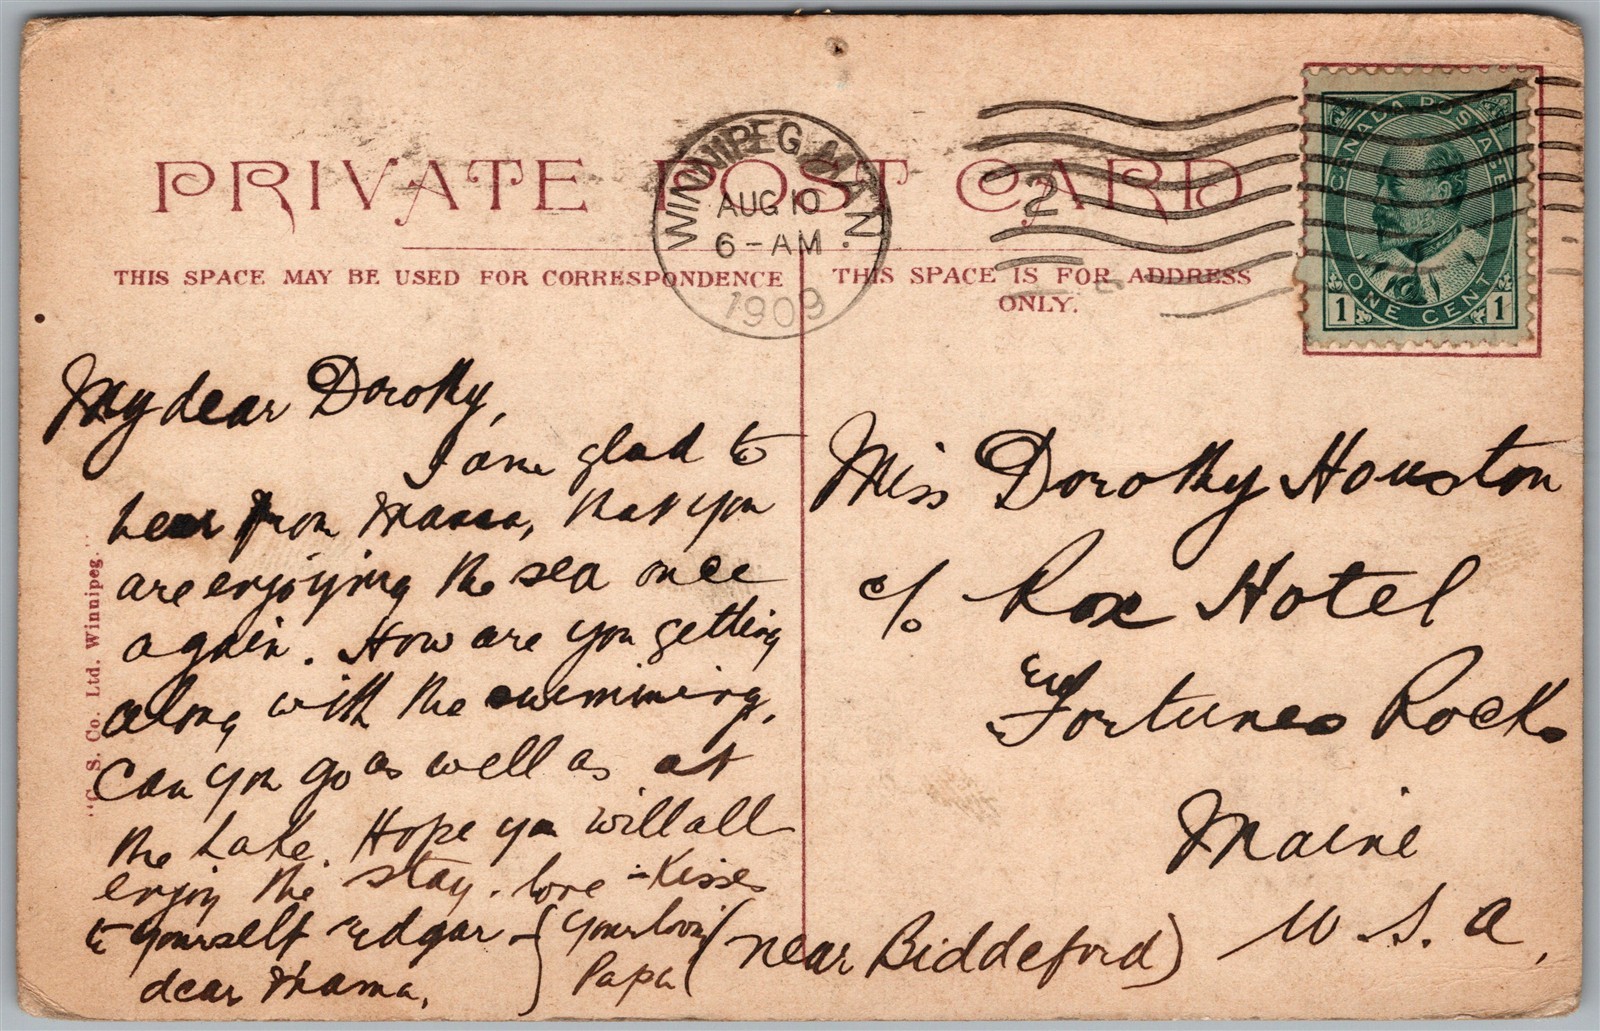 PRIVATE POST CARD
WINNIPEG MAN.
AUG 10
6-AM
1909
2
CANADA POSTAGE
ONE CENT
1 1
THIS SPACE MAY BE USED FOR CORRESPONDENCE
THIS SPACE IS FOR ADDRESS
ONLY.
My dear Dorothy,
I am glad to
hear from Mama, that you
are enjoying the sea once
again. How are you getting
along with the swimming,
Can you go as well as at
the Lake. Hope you will all
enjoy the stay. love & Kisses
to yourself Edgar &
dear Mama,
Your lovin
Papa
Miss Dorothy Houston
c/o Rox Hotel
Fortunes Rocks
Maine
U.S.A,
(near Biddeford)
"C. S. Co. Ltd. Winnipeg."